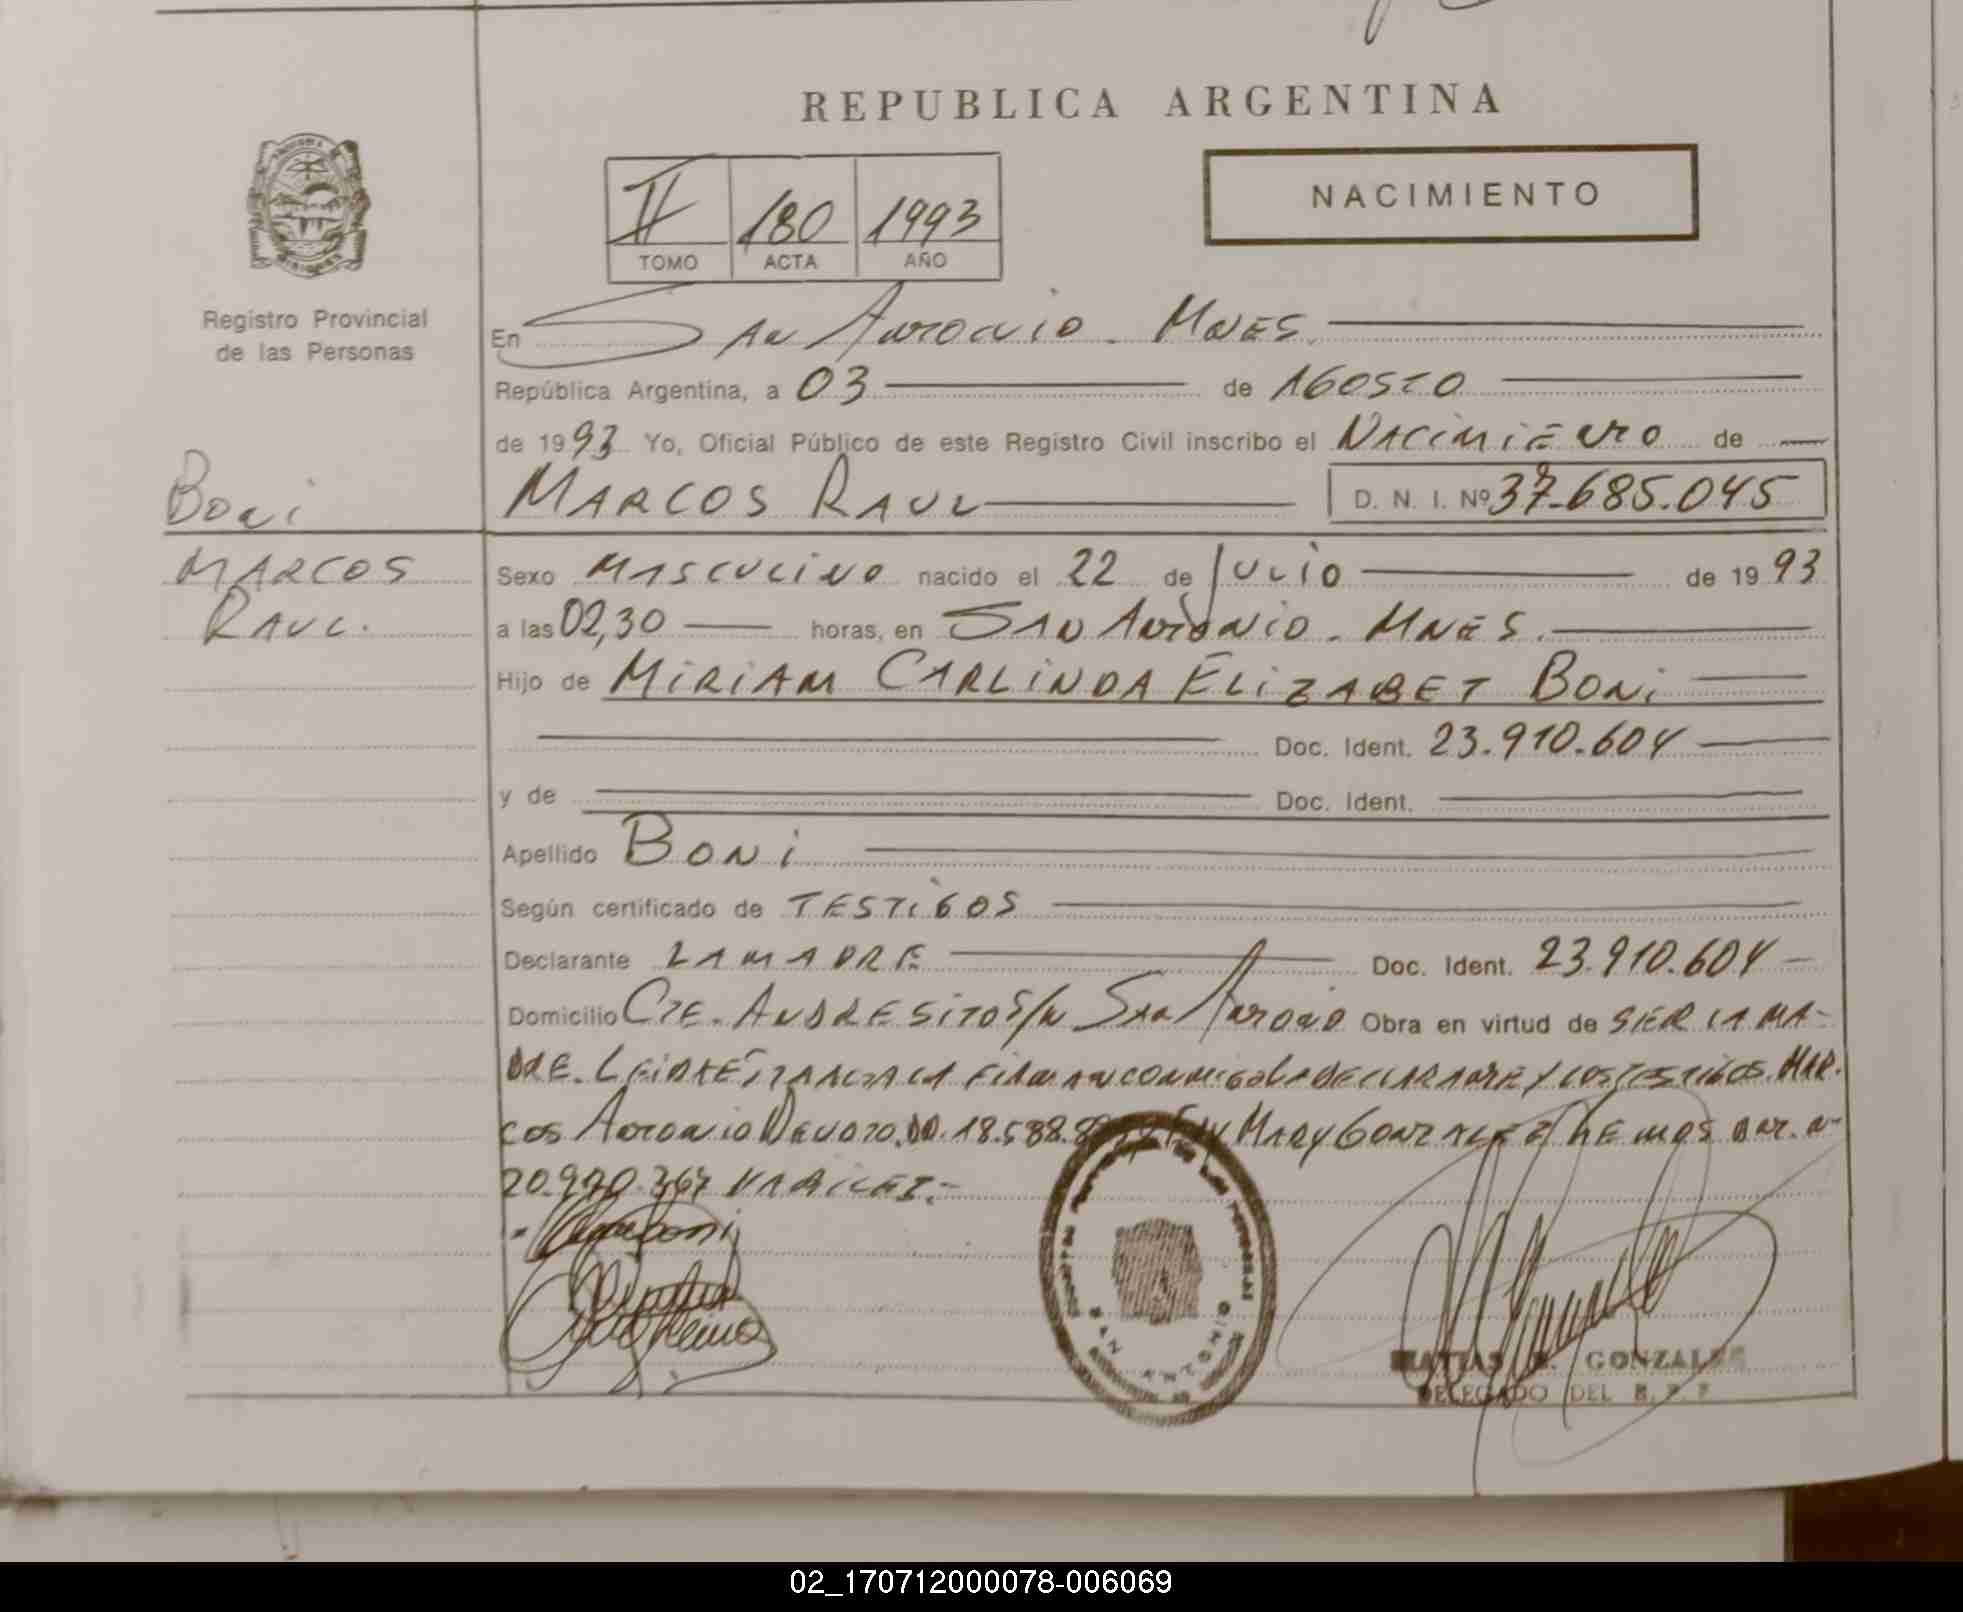 REPUBLICA ARGENTINA
NACIMIENTO
II 180 1993
TOMO ACTA AÑO
Registro Provincial
de las Personas
En San Antonio. Mnes.
República Argentina, a 03 de Agosto
de 1993 Yo, Oficial Público de este Registro Civil inscribo el Nacimiento de
Marcos Raul D. N. I. Nº 37.685.045
Boni
Marcos
Raul.
Sexo Masculino nacido el 22 de Julio de 1993
a las 02,30 horas, en San Antonio. Mnes.
Hijo de Miriam Carlinda Elizabet Boni
Doc. Ident. 23.910.604
y de Doc. Ident.
Apellido Boni
Según certificado de Testigos
Declarante La Madre Doc. Ident. 23.910.604
Domicilio Cte. Andresito S/N San Antonio Obra en virtud de ser la ma-
dre. Leida esta acta la firman conmigo la declarante y los testigos. Mar-
cos Antonio 18.588. Mary Gonzalez
20.970.367
SAN ANTONIO
MATIAS GONZALEZ
DELEGADO DEL R. P. P
02_170712000078-006069